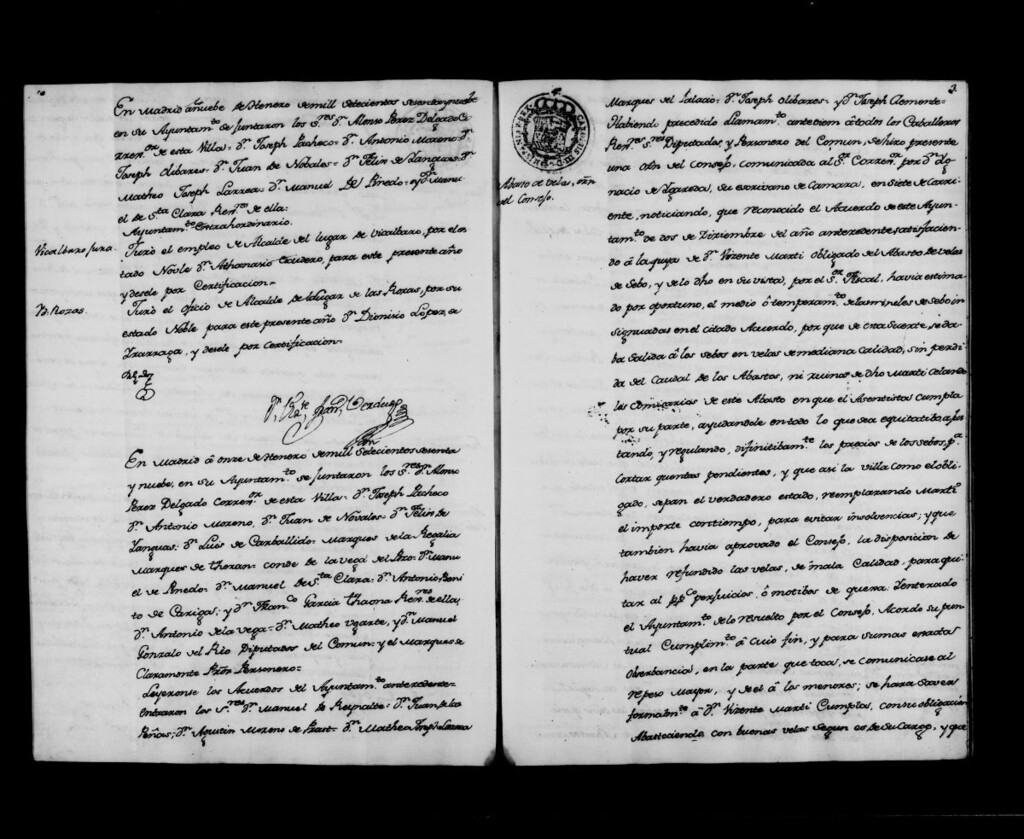 En Madrid a nuebe de Henero de mill setecientos sesenta y nuebe
en su Ayuntam.to se juntaron los S.res D.n Alonso Perez Delgado Co
rren.or de esta Villa: D.n Joseph Pacheco: D.n Antonio Moreno: D.n
Joseph olibares: D.n Juan de Nobales: D.n Felix de Yanguas: D.n
Matheo Joseph Larrea: D.n Manuel de Pinedo: y D.n Manu
el de S.ta Clara Rex.res de ella:
Ayuntam.to Extrahordinario.
Vicalbaro jura.
Juró el empleo de Alcalde del lugar de Vicalbaro, por el es
tado Noble D.n Athanasio Escudero, para este presente año
y desele por Certificacion.
R.s Rozas.
Juró el oficio de Alcalde del lugar de las Rozas, por su
estado Noble para este presente año D.n Dionisio Lopez, de
Yrarraga, y desele por certificacion.
En Madrid á onze de Henero de mill setecientos sesenta
y nuebe, en su Ayuntam.to se juntaron los S.res D.n Alonso
Perez Delgado Corren.or de esta Villa: D.n Joseph Pacheco
D.n Antonio Moreno, D.n Juan de Novales: D.n Felix de
Yanguas: D.n Luis de Carballido: Marques de la Regalia
Marques de thoran: conde de la vega del Pozo: D.n Manu
el de Pinedo: D.n Manuel de S.ta Clara: D.n Antonio Beni
to de Cariga; y D.n Fran.co Garcia thaona Rex.res de ella;
D.n Antonio de la vega: D.n Matheo Ugarte, y D.n Manuel
Gonzalo del Rio Diputados del Comun: y el Marques de
Claramonte Pror. Personero:
Leyeronse los Acuerdos del Ayuntam.to antezedente.
Entraron los S.res D.n Manuel de Reynalte: D.n Juan de la
Peñas; D.n Agustin Moreno de Prat: D.n Matheo Joseph Larrea
3.
Abasto de velas, orñ.
del Consejo.
Marques del Palacio: D.n Joseph olibares: y D.n Joseph Clemente:
Habiendo precedido llamam.to ante diem á todos los Caballeros
Rex.res S.res Diputados, y Personero del Comun, se hizo presente
una orñ del Consejo, comunicada al S.r Corren.or por D.n Yg
nacio de Ygareda, su escrivano de Camara, en siete de Corri
ente, noticiando, que reconocido el Acuerdo de este Ayun
tam.to de dos de Diziembre del año antezedente, satisfacien
do á la quexa de D.n Vizente Marti obligado del Abasto de velas
de Sebo, y de lo dho en su vista, por el S.or Fiscal, havia estima
do por oportuno, el medio ó temperam.to de las mieles de sebo in
signuadas en el citado Acuerdo, por que de esta suerte, se da
ba salida á los sebos en velas de mediana calidad, sin perdi
da del Caudal de los Abastos, ni ruina de dho Marti celando
los Comisarios de este Abasto en que el Asentista cumpla
por su parte, ayudandole en todo lo que sea equitatibo ajus
tando, y regulando, difinitibam.te los precios de los sebos, p.a
cortar quentas pendientes, y que asi la villa como el obli
gado, sepan el verdadero estado, reemplazando Marti
el importe con tiempo, para evitar insolvencias; y que
tambien havia aprovado el Consejo, la disposicion de
haver refundido las velas, de mala Calidad, para qui
tar al pp.co perjuicios, ó motibos de quexa. Y enterado
el Ayuntam.to de lo resuelto por el Consejo. Acordo su pun
tual Cumplim.to á cuio fin, y para su mas exactas
observancia, en la parte que toca, se comunicase al
repeso Mayor, y de el á los menores; se hara saver
formalm.te á D.n Vizente Marti Cumplas, con su obligacion
Abasteciendo con buenas velas segun es de su Cargo, y que